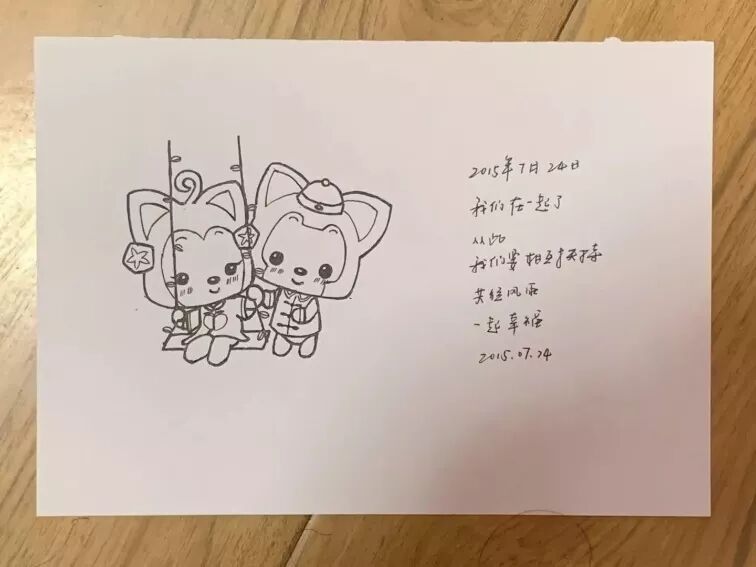 2015年7月24日
我们在一起了
从此
我们要相互扶持
共经风雨
一起幸福
2015.07.24